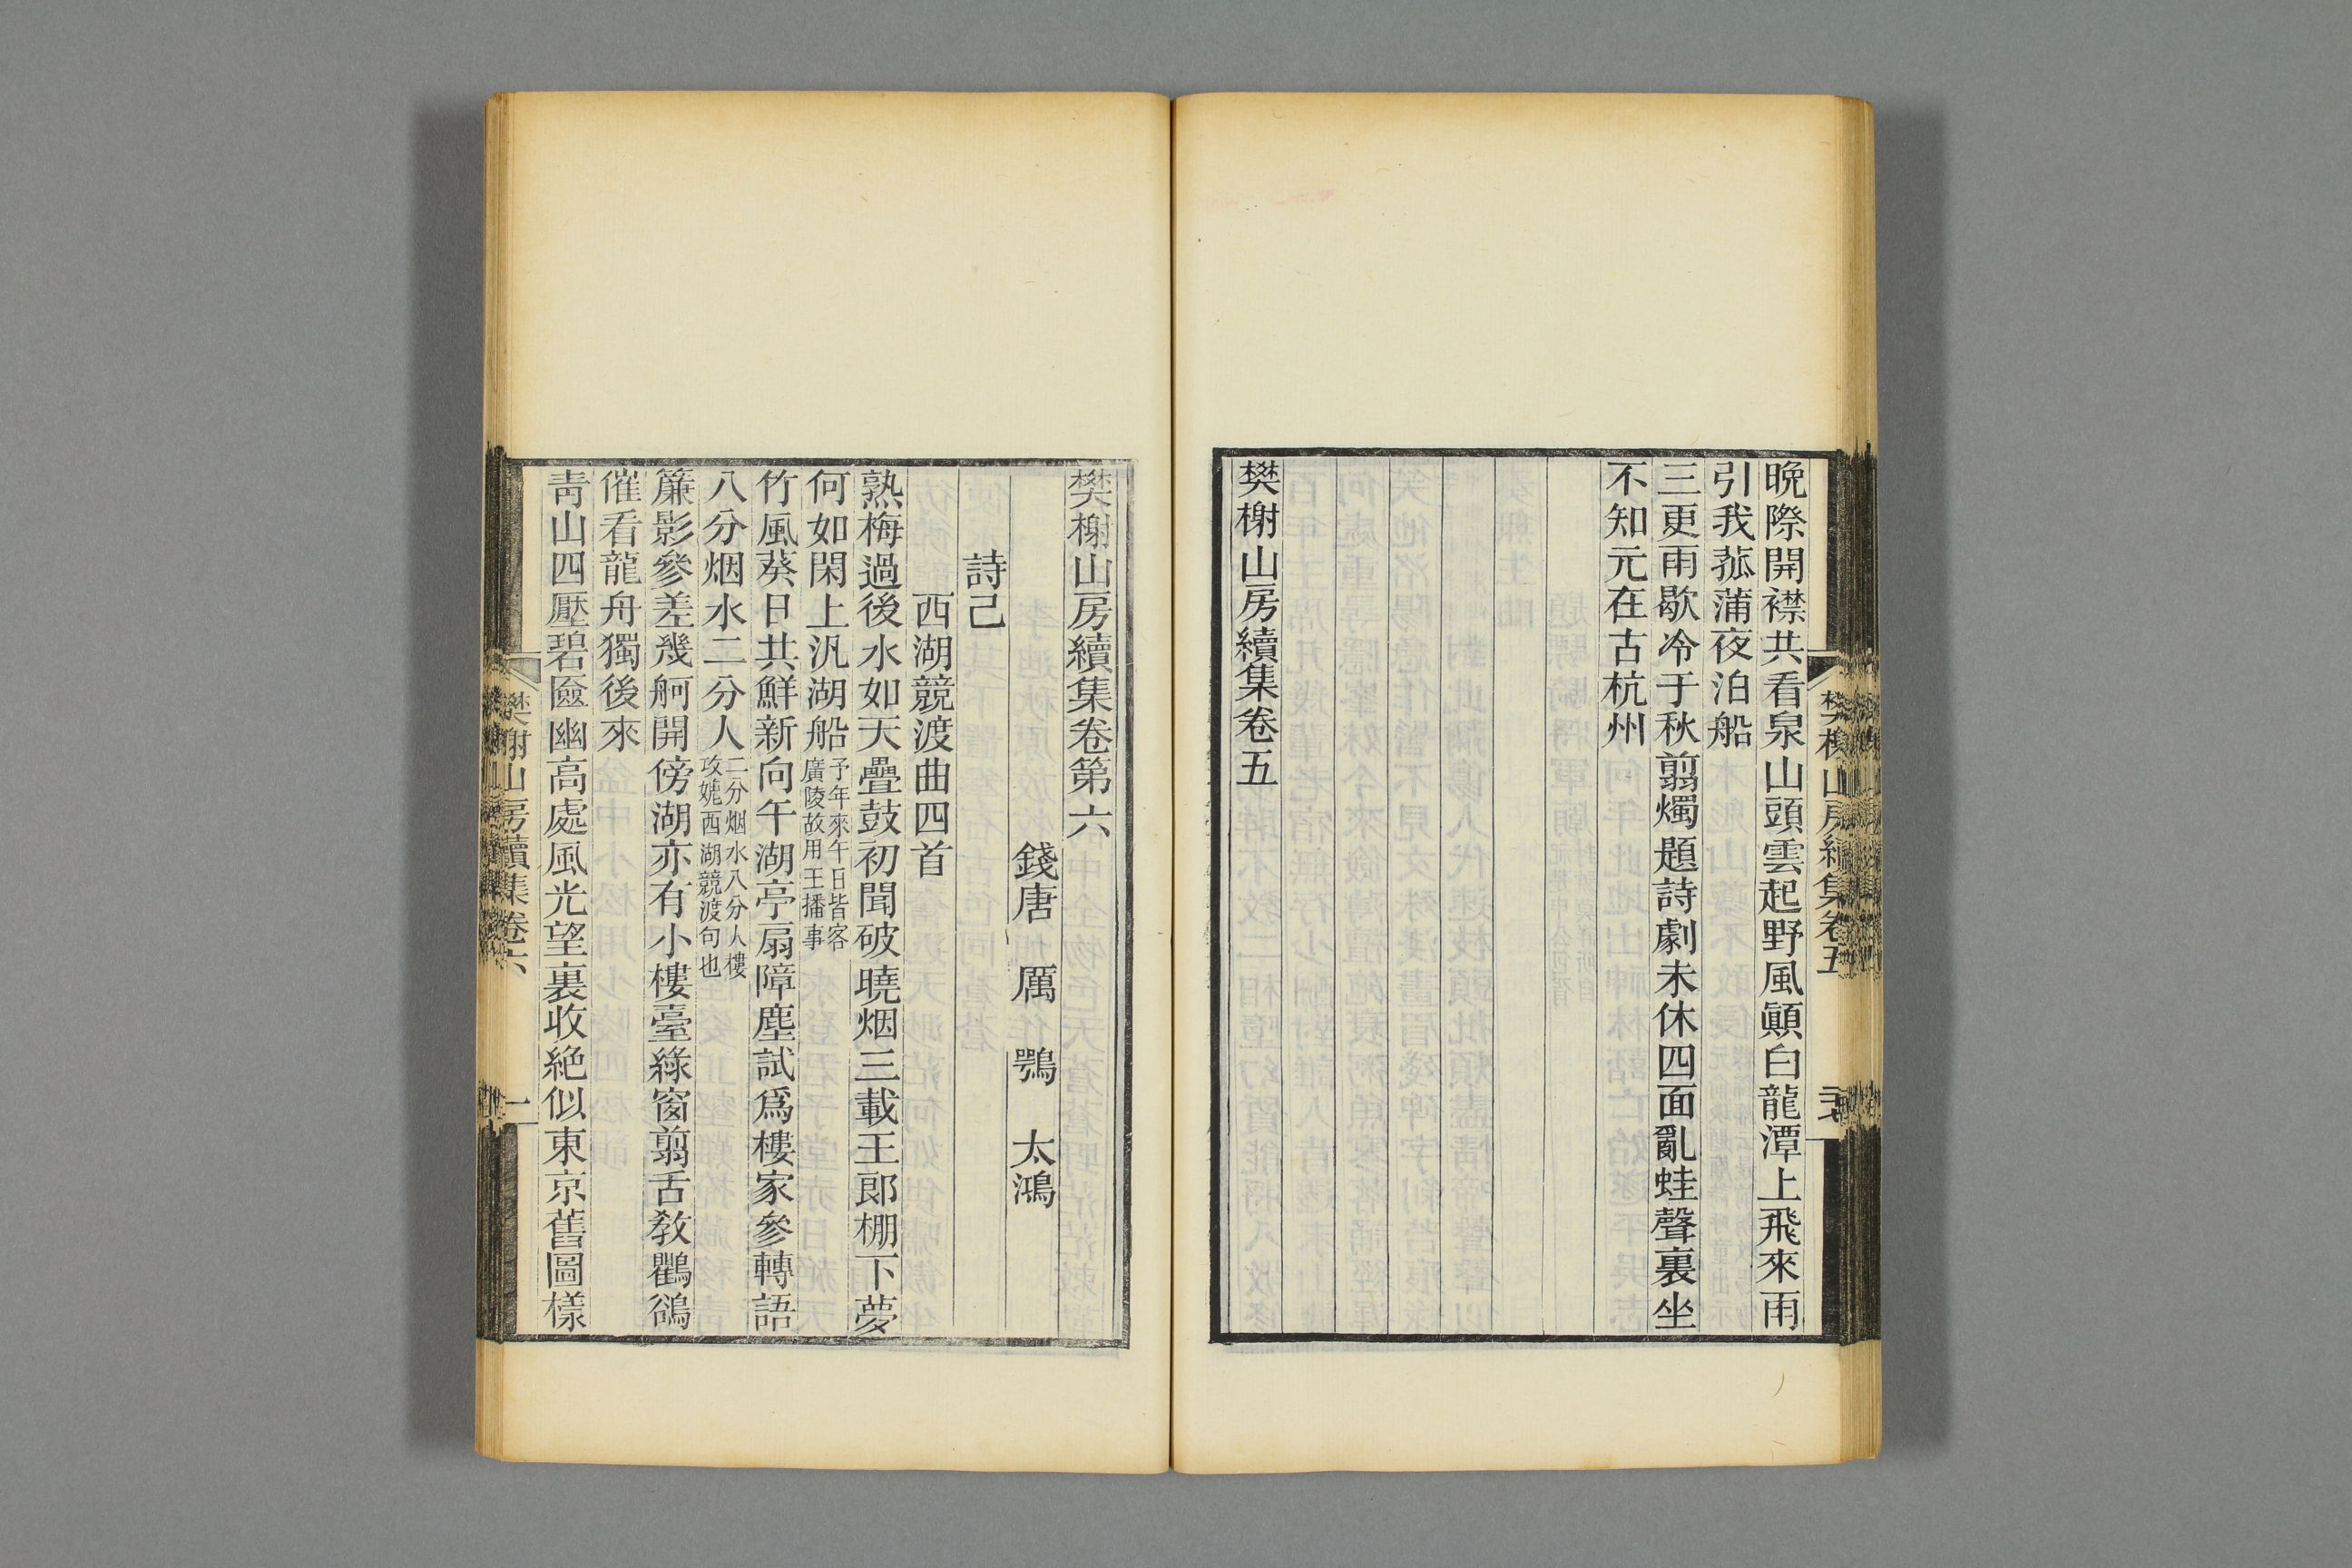 樊榭山房續集卷五
晚際開襟共看泉山頭雲起野風顚白龍潭上飛來雨
引我菰蒲夜泊船
三更雨歇冷于秋翦燭題詩劇未休四面亂蛙聲裏坐
不知元在古杭州
樊榭山房續集卷五
樊榭山房續集卷第六
錢唐 厲 鶚 太鴻
詩己
西湖競渡曲四首
熟梅過後水如天疊鼓初聞破曉烟三載王郎棚下夢
何如閑上汎湖船予年來午日皆客廣陵故用王播事
竹風葵日共鮮新向午湖亭扇障塵試爲樓家參轉語
八分烟水二分人二分烟水八分人樓攻媿西湖競渡句也
簾影參差幾舸開傍湖亦有小樓臺綠窗翦舌敎鸜鵒
催看龍舟獨後來
靑山四壓碧匳幽高處風光望裏收絕似東京舊圖樣
樊榭山房續集卷六
一